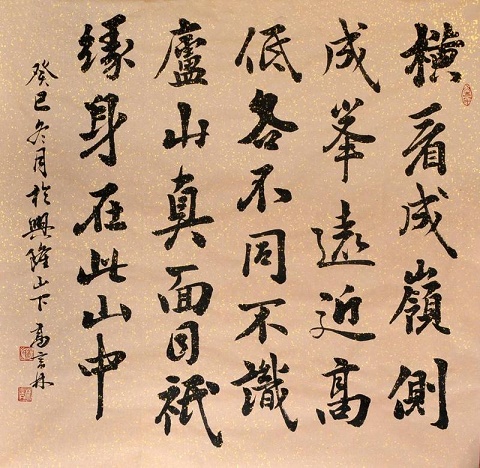 橫看成嶺側
成峯遠近高
低各不同不識
廬山真面目祇
緣身在此山中
癸巳冬月於興隆山下高言林